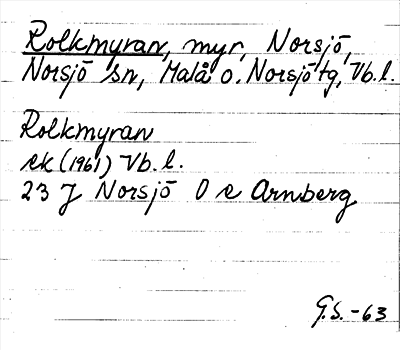 Rolkmyran, myr, Norsjö,
Norsjö sn, Malå o. Norsjö tg, Vb.l.
Rolkmyran
ek (1961) Vb. l.
23 J Norsjö O e Arnberg
G.S. -63